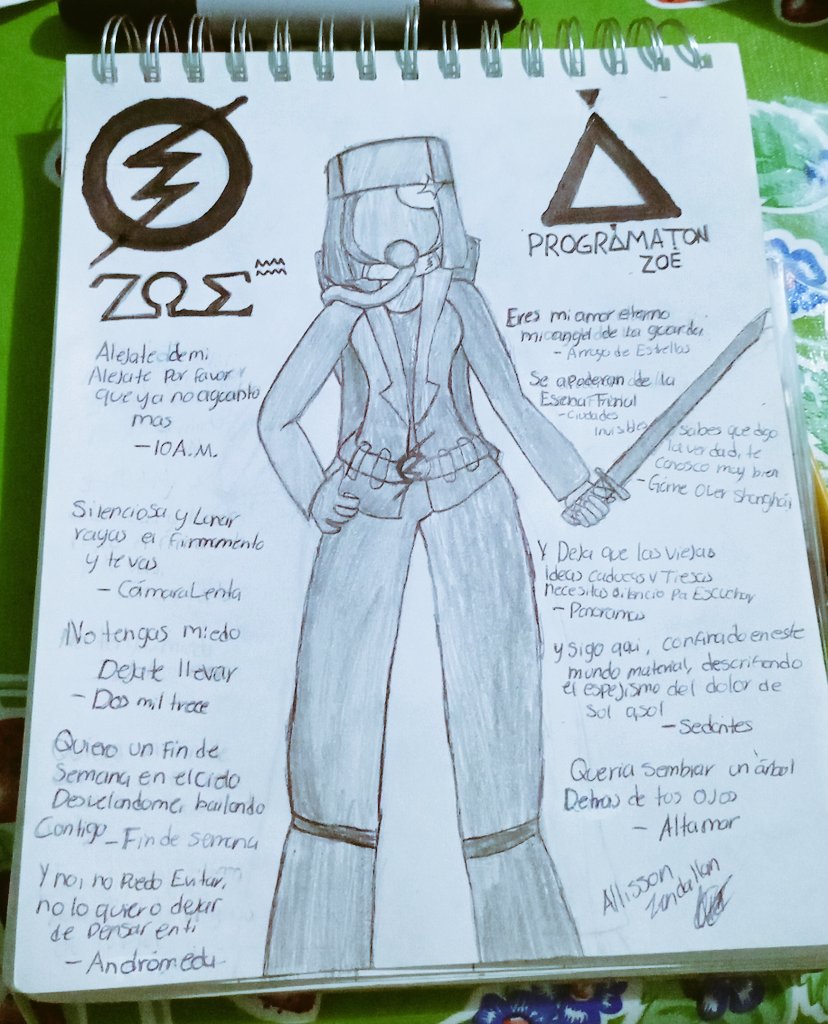 ZΩΣ
Alejate de mi
Alejate por favor
que ya no agcanto
mas
- 10 A.M.
Silenciosa y Lunar
rayas el firmamento
y te vas
- Cámara Lenta
No tengas miedo
Dejate llevar
- Dos mil trece
Quiero un fin de
Semana en el cielo
Desvelandome, bailando
Contigo - Fin de semana
Y no, no Puedo Evitar,
no lo quiero dejar
de pensar en ti
- Andrómeda
PROGRAMATON
ZOÉ
Eres mi amor eterno
mi angel de la guarda
- Arrullo de Estrellas
Se apoderan de la
Escena Frontal
- Ciudades
Invisibles
sabes que digo
la verdad, te
conosco muy bien
- Game Over Shanghái
Y Deja que las viejas
Ideas caducas y Tiesas
necesitas silencio pa Escuchar
- Panoramas
y sigo aqui, confinado en este
mundo material, descrifrando
el espejismo del dolor de
sol a sol
- Sedantes
Queria sembrar un árbol
Detras de tus ojos
- Altamar
Allisson
Zandallan